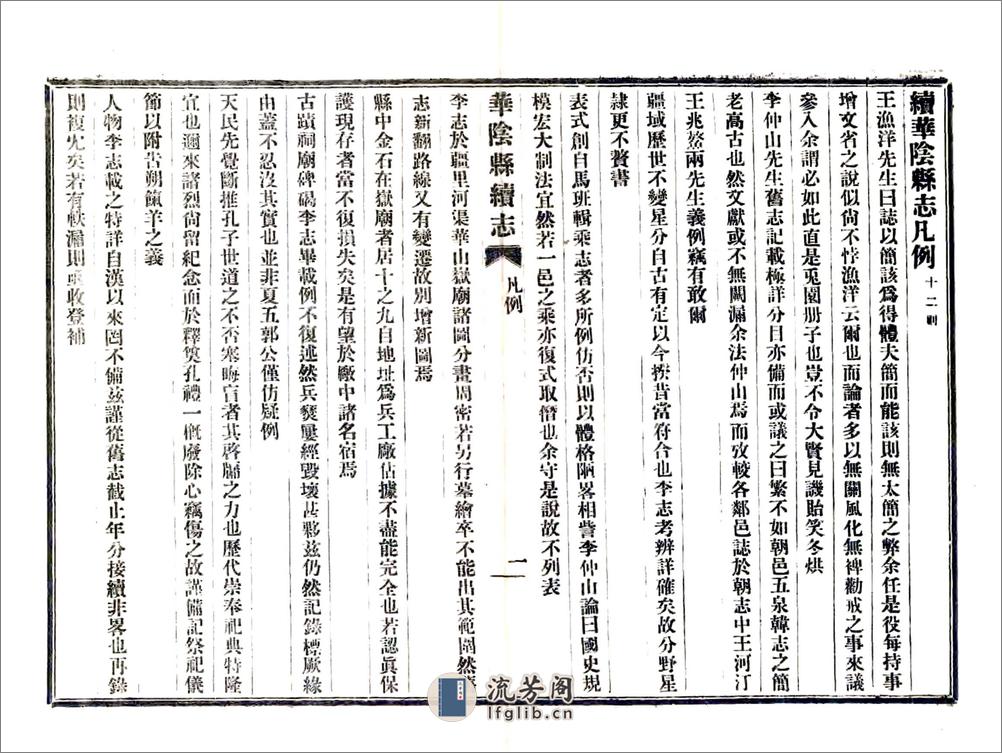 續華陰縣志凡例 十二則
王漁洋先生曰誌以簡該爲得體夫簡而能該則無太簡之弊余任是役每持事
增文省之說似尙不悖漁洋云爾也而論者多以無關風化無裨勸戒之事來議
參入余謂必如此直是兎園册子也豈不令大賢見譏貽笑冬烘
李仲山先生舊志記載極詳分目亦備而或議之曰繁不如朝邑五泉韓志之簡
老高古也然文獻或不無闕漏余法仲山焉而攷較各鄰邑誌於朝志中王河汀
王兆鰲兩先生義例竊有取爾
疆域歷世不變星分自古有定以今揆昔當符合也李志考辨詳確矣故分野星
隷更不贅書
表式創自馬班輯乘志者多所例仿否則以體格陋畧相訾李仲山論曰國史規
模宏大制法宜然若一邑之乘亦復式取僭也余守是說故不列表
華陰縣續志 凡例 一
李志於疆里河渠華山嶽廟諸圖分畫周密若另行摹繪卒不能出其範圍然
志新翻路線又有變遷故別增新圖焉
縣中金石在嶽廟者居十之九自地址爲兵工廠佔據不盡能完全也若認眞保
護現存者當不復損失矣是有望於廠中諸名宿焉
古蹟祠廟碑碣李志畢載例不復述然兵燹屢經毀壞甚夥玆仍然記錄標厥緣
由蓋不忍沒其實也並非夏五郭公僅仿疑例
天民先覺斷推孔子世道之不否寒晦盲者其啓牖之力也歷代崇奉祀典特隆
宜也邇來諸烈尙留紀念而於釋奠孔禮一槪廢除心竊傷之故謹備記祭祀儀
節以附告朔餼羊之義
人物李志載之特詳自漢以來罔不備玆謹從舊志截止年分接續非畧也再錄
則複冗矣若有軼漏則亟收登補
流芳阁
lfglib.cn